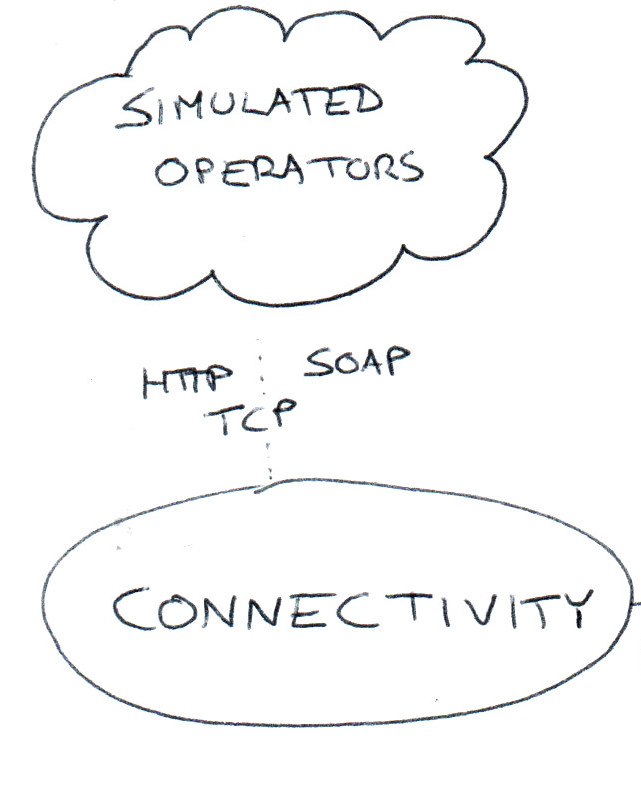 SIMULATED
OPERATORS
HTTP SOAP
TCP
CONNECTIVITY